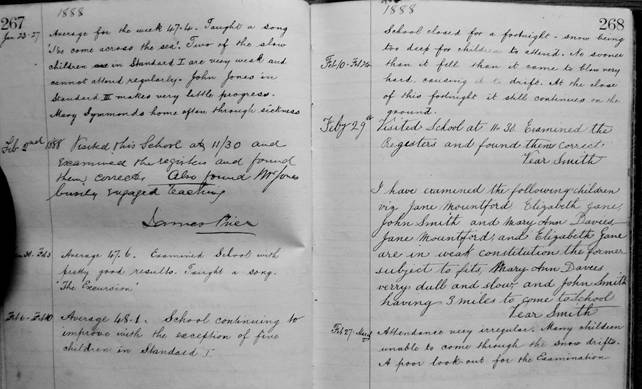 267
1888
Jan 23-27
Average for the week 47.4. Taught a song
'I've come across the sea'. Two of the slow
children in Standard I are very weak and
cannot attend regularly. John Jones in
Standard II makes very little progress.
Mary Symmonds home often through sickness
Feb 2nd 1888
Visited this School at 11/30 and
examined the registers and found
them correct. Also found Mr Jones
busily engaged teaching
James
Jan 30. Feb 3
Average 47.6. Examined School with
pretty good results. Taught a song.
'The Excursion'
Feb 6 - Feb 10
Average 48.1. School continuing to
improve with the exception of five
children in Standard I.
268
1888
School closed for a fortnight - snow being
too deep for children to attend. No sooner
Feb 10 - Feb 24
than it fell than it came to blow very
hard, causing it to drift. At the close
of this fortnight it still continues on the
ground.
Feby 29th
Visited School at 11.30. Examined the
Registers and found them correct
Vear Smith
I have examined the following children
viz Jane Mountford Elizabeth Jane,
John Smith and Mary Ann Davies
Jane Mountford, and Elizabeth Jane
are in weak constitution the former
subject to fits, Mary Ann Davies
verry dull and slow and John Smith
having 3 miles to come to school
Vear Smith
Feb 27
Attendance very irregular. Many children
unable to come through the snow drifts.
A poor look out for the Examination